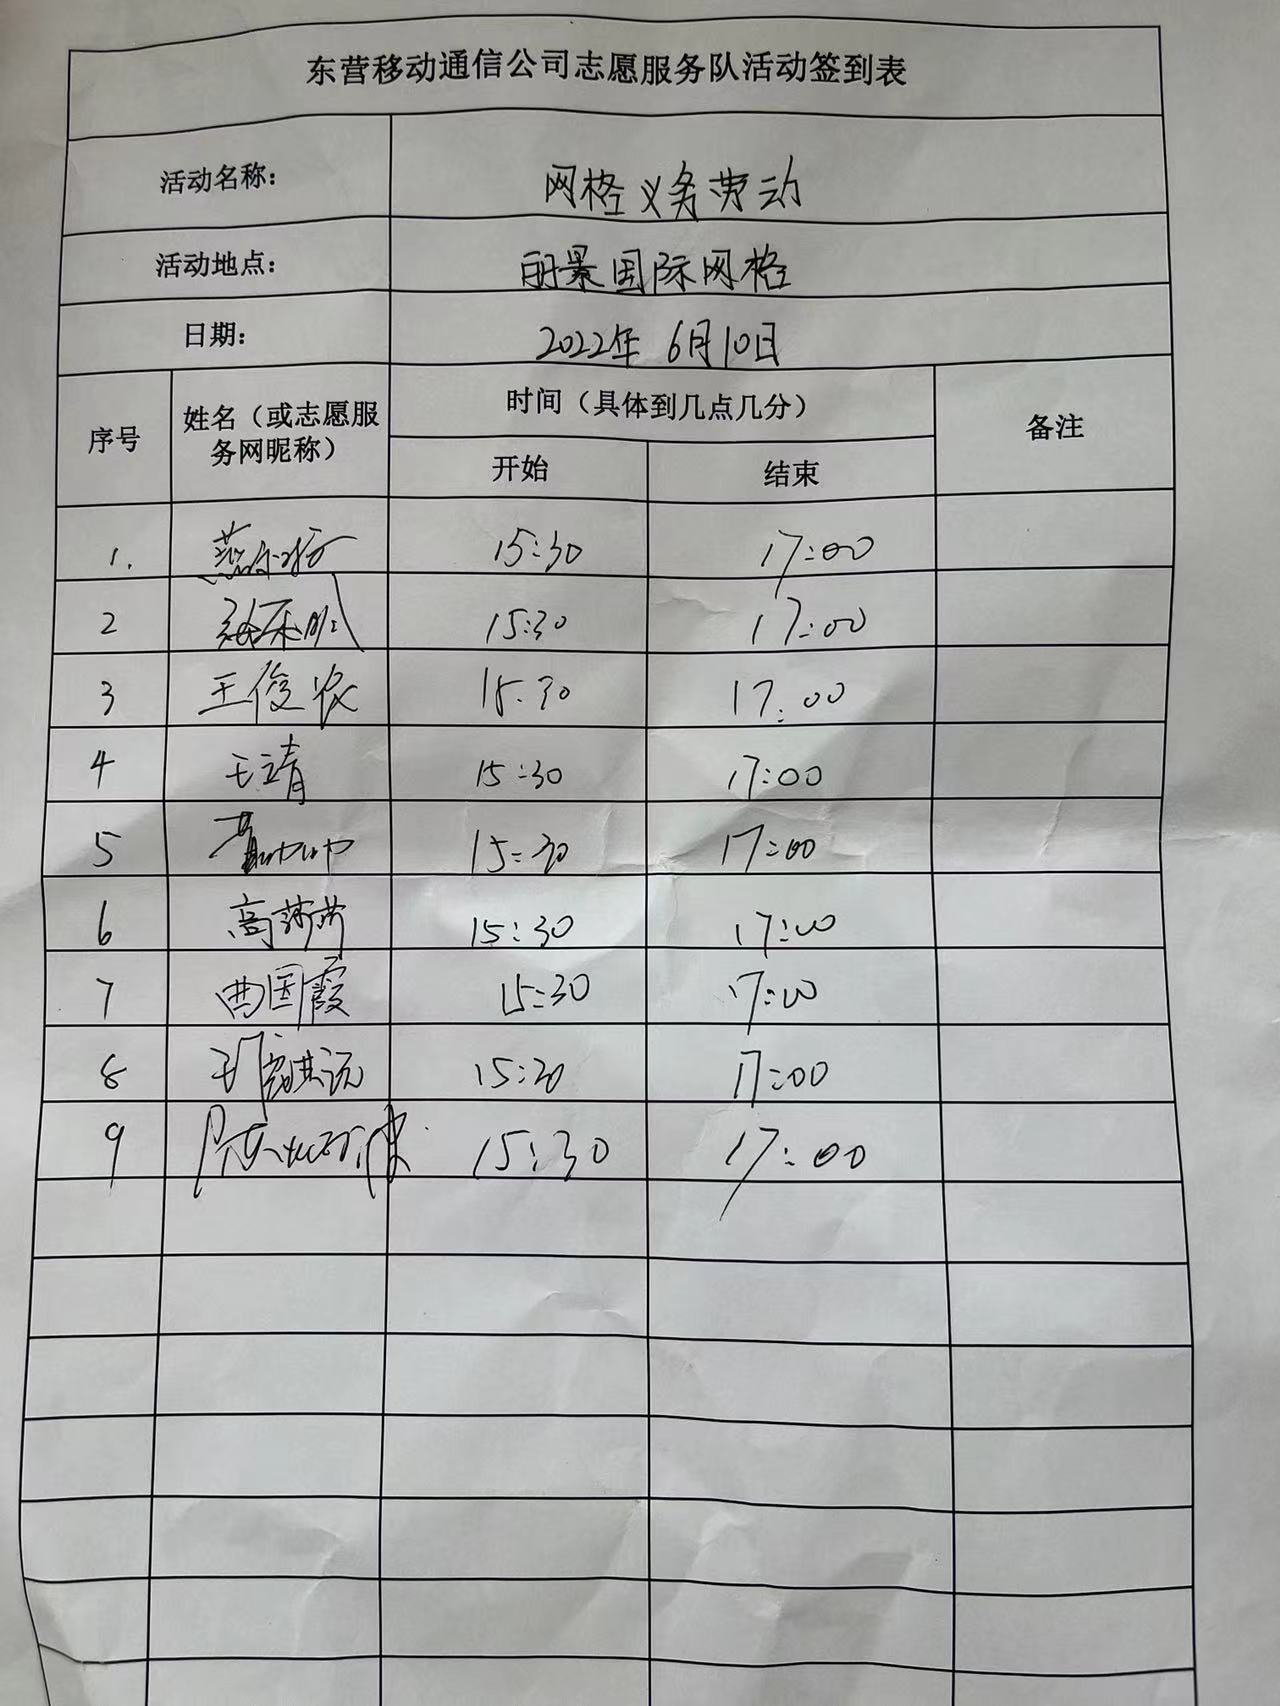 东营移动通信公司志愿服务队活动签到表
活动名称： 网格义务劳动
活动地点： 丽景国际网格
日期： 2022年 6月10日
序号 姓名（或志愿服务网昵称） 时间（具体到几点几分） 备注
开始 结束
1. 15:30 17:00
2 15:30 17:00
3 王俊 15:30 17:00
4 王靖 15:30 17:00
5 15:30 17:00
6 高莎莎 15:30 17:00
7 曲国霞 15:30 17:00
8 15:30 17:00
9 15:30 17:00